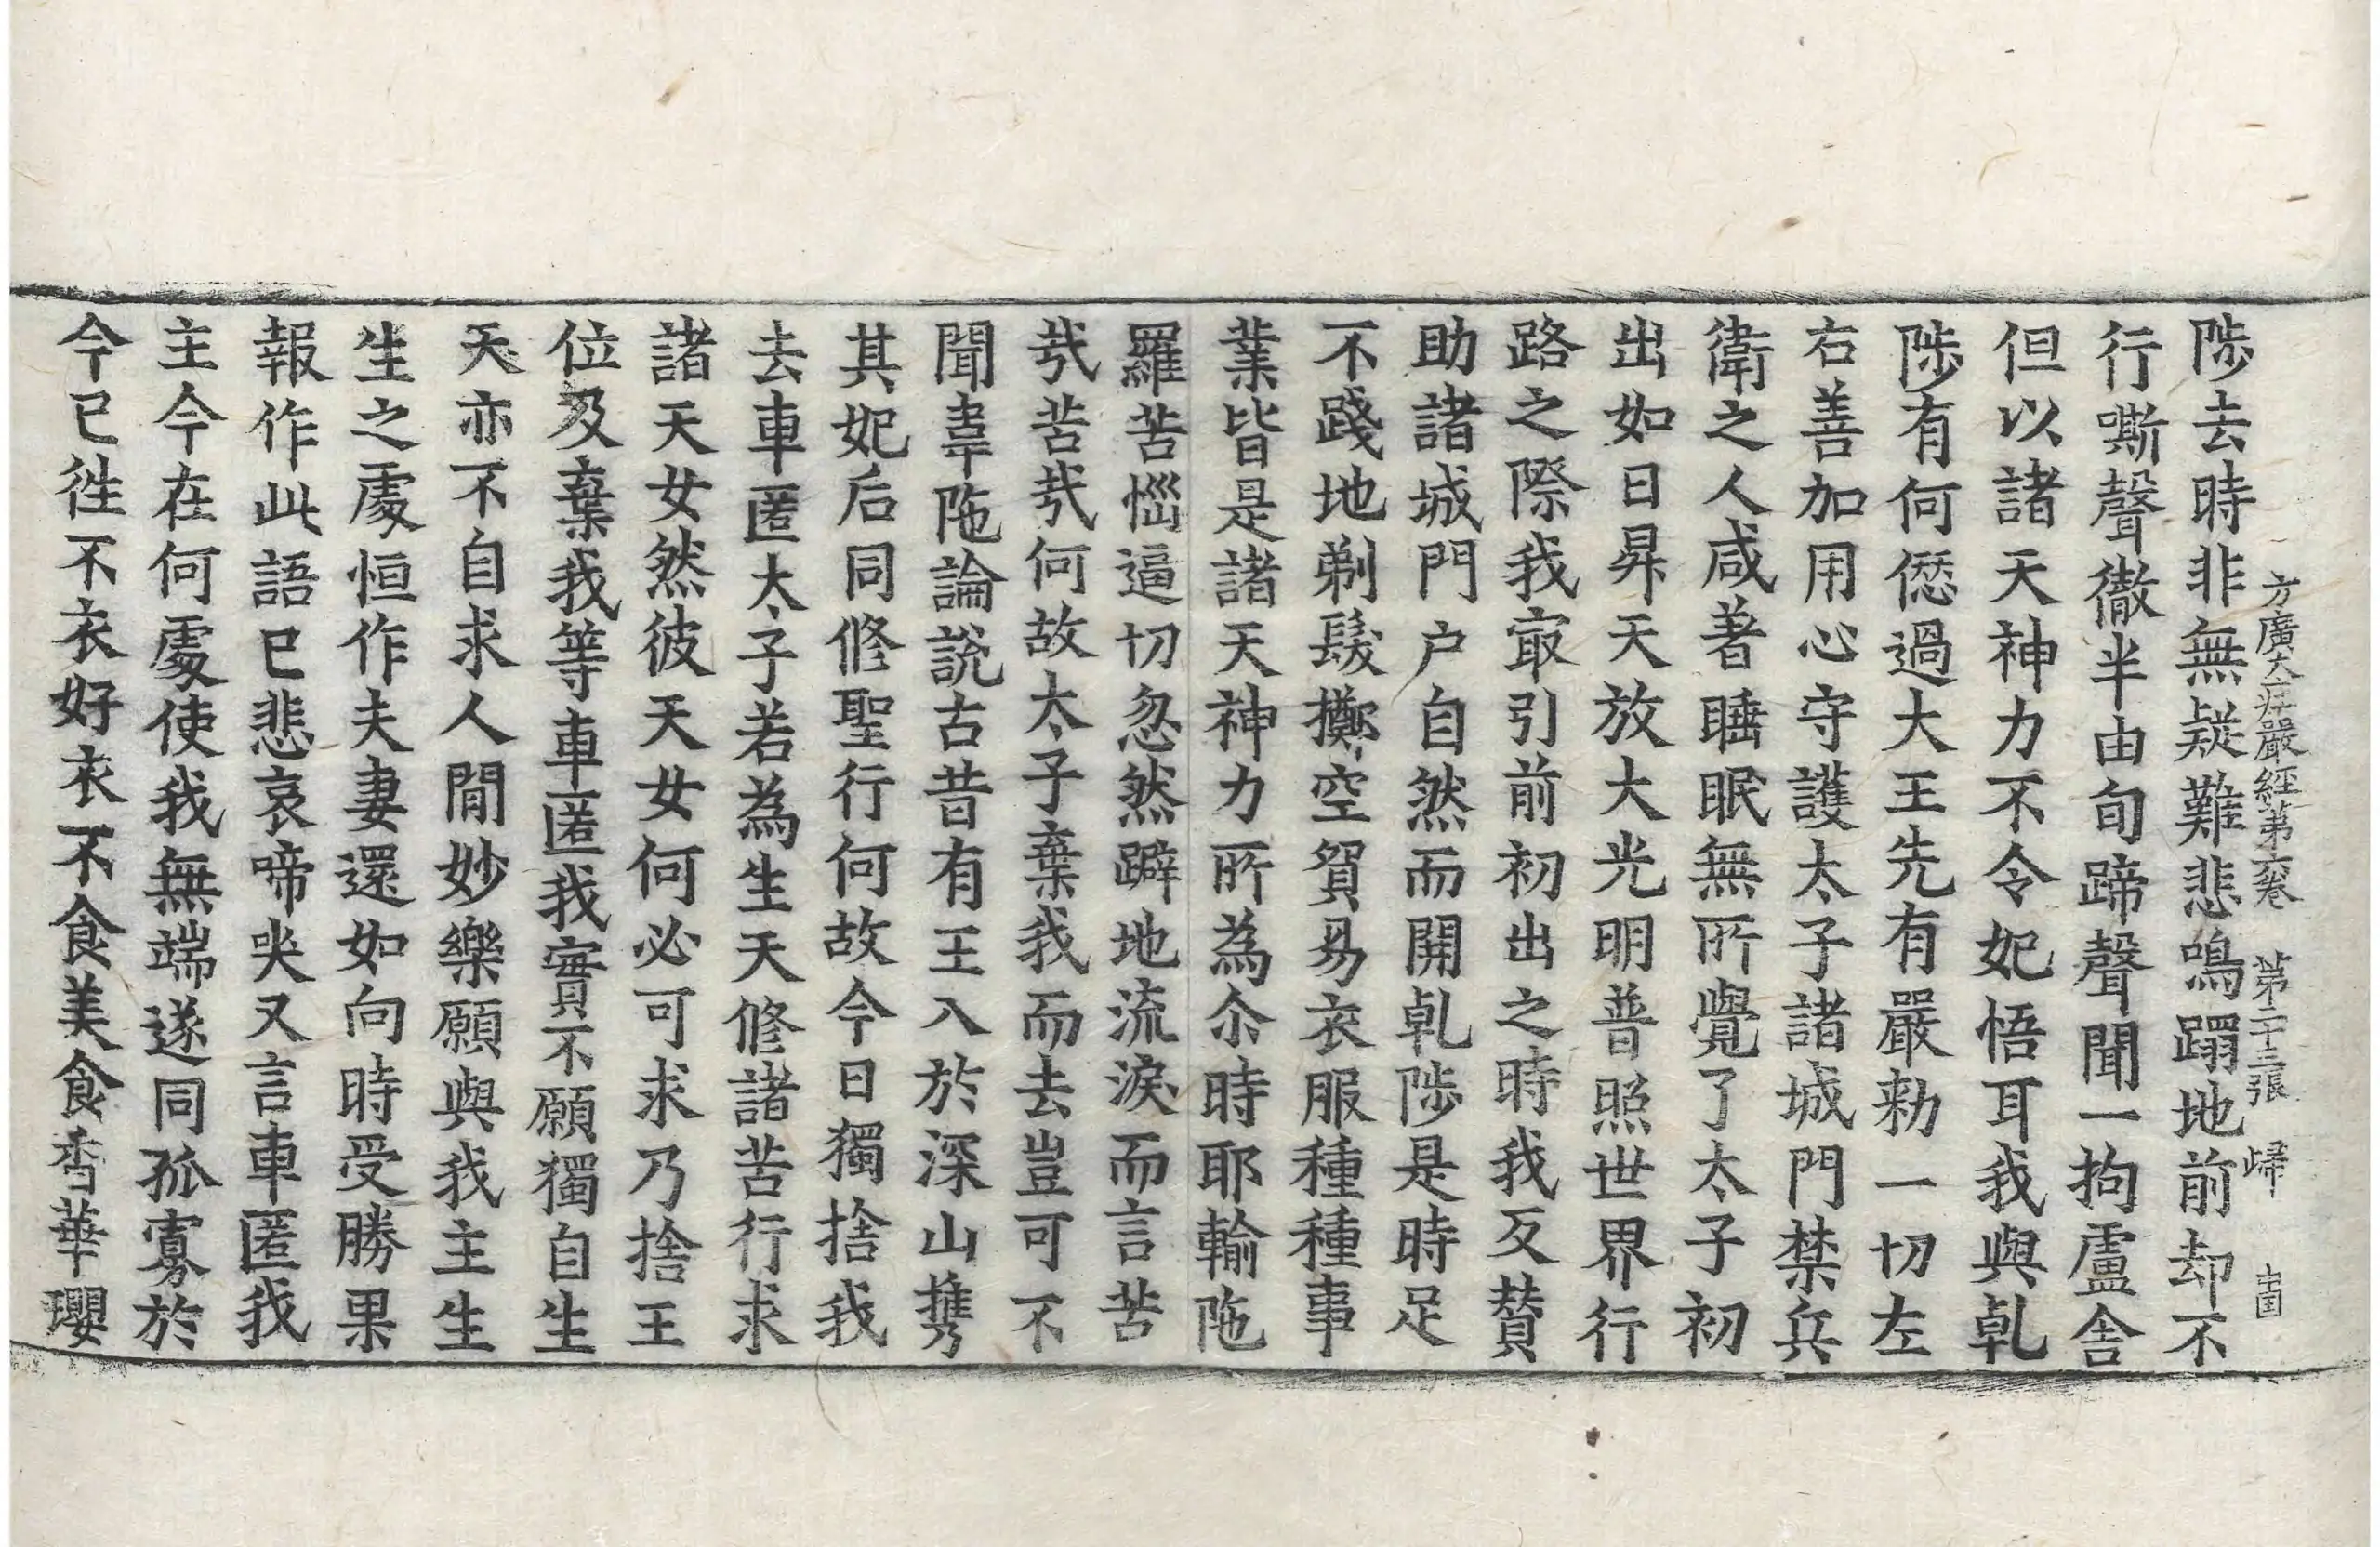 方廣大庄嚴經第六卷 第二十三張 歸
陟去時非無疑難悲鳴蹋地前却不
行嘶聲徹半由旬蹄聲聞一拘盧舍
但以諸天神力不令妃悟耳我與乹
陟有何僁過大王先有嚴勑一切左
右善加用心守護太子諸城門禁兵
衛之人咸著睡眠無所覺了太子初
出如日昇天放大光明普照世界行
路之際我㝡引前初出之時我反賛
助諸城門户自然而開乹陟是時足
不踐地剃髮擲空貿易衣服種種事
業皆是諸天神力所為尒時耶輸陁
羅苦惱逼切忽然躃地流淚而言苦
㢤苦㢤何故太子棄我而去豈可不
聞韋陁論說古昔有王入於深山携
其妃后同修聖行何故今日獨捨我
去車匿太子若為生天修諸苦行求
諸天女然彼天女何必可求乃捨王
位及棄我等車匿我實不願獨自生
天亦不自求人閒妙樂願與我主生
生之處恒作夫妻還如向時受勝果
報作此語已悲哀啼哭又言車匿我
主今在何處使我無端遂同孤寡於
今已徃不衣好衣不食美食香華瓔